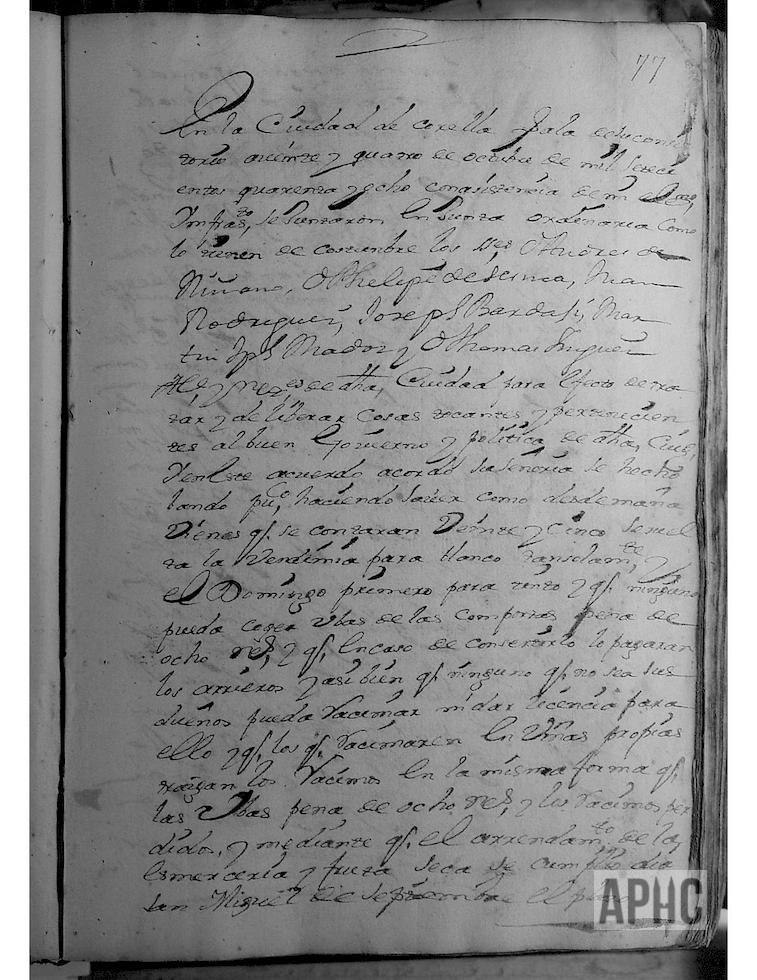 77
En la Ciudad de corella y sala de su consis
torio a veinte y quatro de octubre de mil setecí
entos quarenta y ocho con asistencia de mi el
Ynfras.to, se Juntaron En Junta ordinaria Como
lo tienen de costumbre los S.res D.n Andres de
Miñano, D.n Phelipe de Sesma, Juan
Rodriguez, Joseph Bardaji, Mar
tin Jph Amador y D.n Thomas Yñiguez
Alc.e y de dha, Ciudad para Efecto de tra
tar y de liberar Cosas tocantes y pertenecien
tes al buen Gobierno y política de dha, Ciud,
Y en Este acuerdo acordó su señoria se heche
bando pu.co, haciendo saver como desde mañana
Viernes q.e se contaran Veinte y Cinco se suel
ta la Vendímía para blanco tan solam.te y
el Domingo primero para tinto y q.e ninguno
pueda coger Ubas de las Comportas pena de
ocho r.es, y q.e En caso de consertirlo lo pagaran
los arrieros y asi bien q.e ninguno q.e no sea sus
dueños pueda Racimar ni dar licencia para
ello y q.e los q.e Racimaren En Viñas propias
traigan los Racimos En la misma forma q.e
las Ubas pena de ocho r.es, y los Racimos per
didos, y mediante q.e el arrendam.to de la
Esmerceria y fruta seca se cumplio dia
san Miguel de septiembre el
APHC